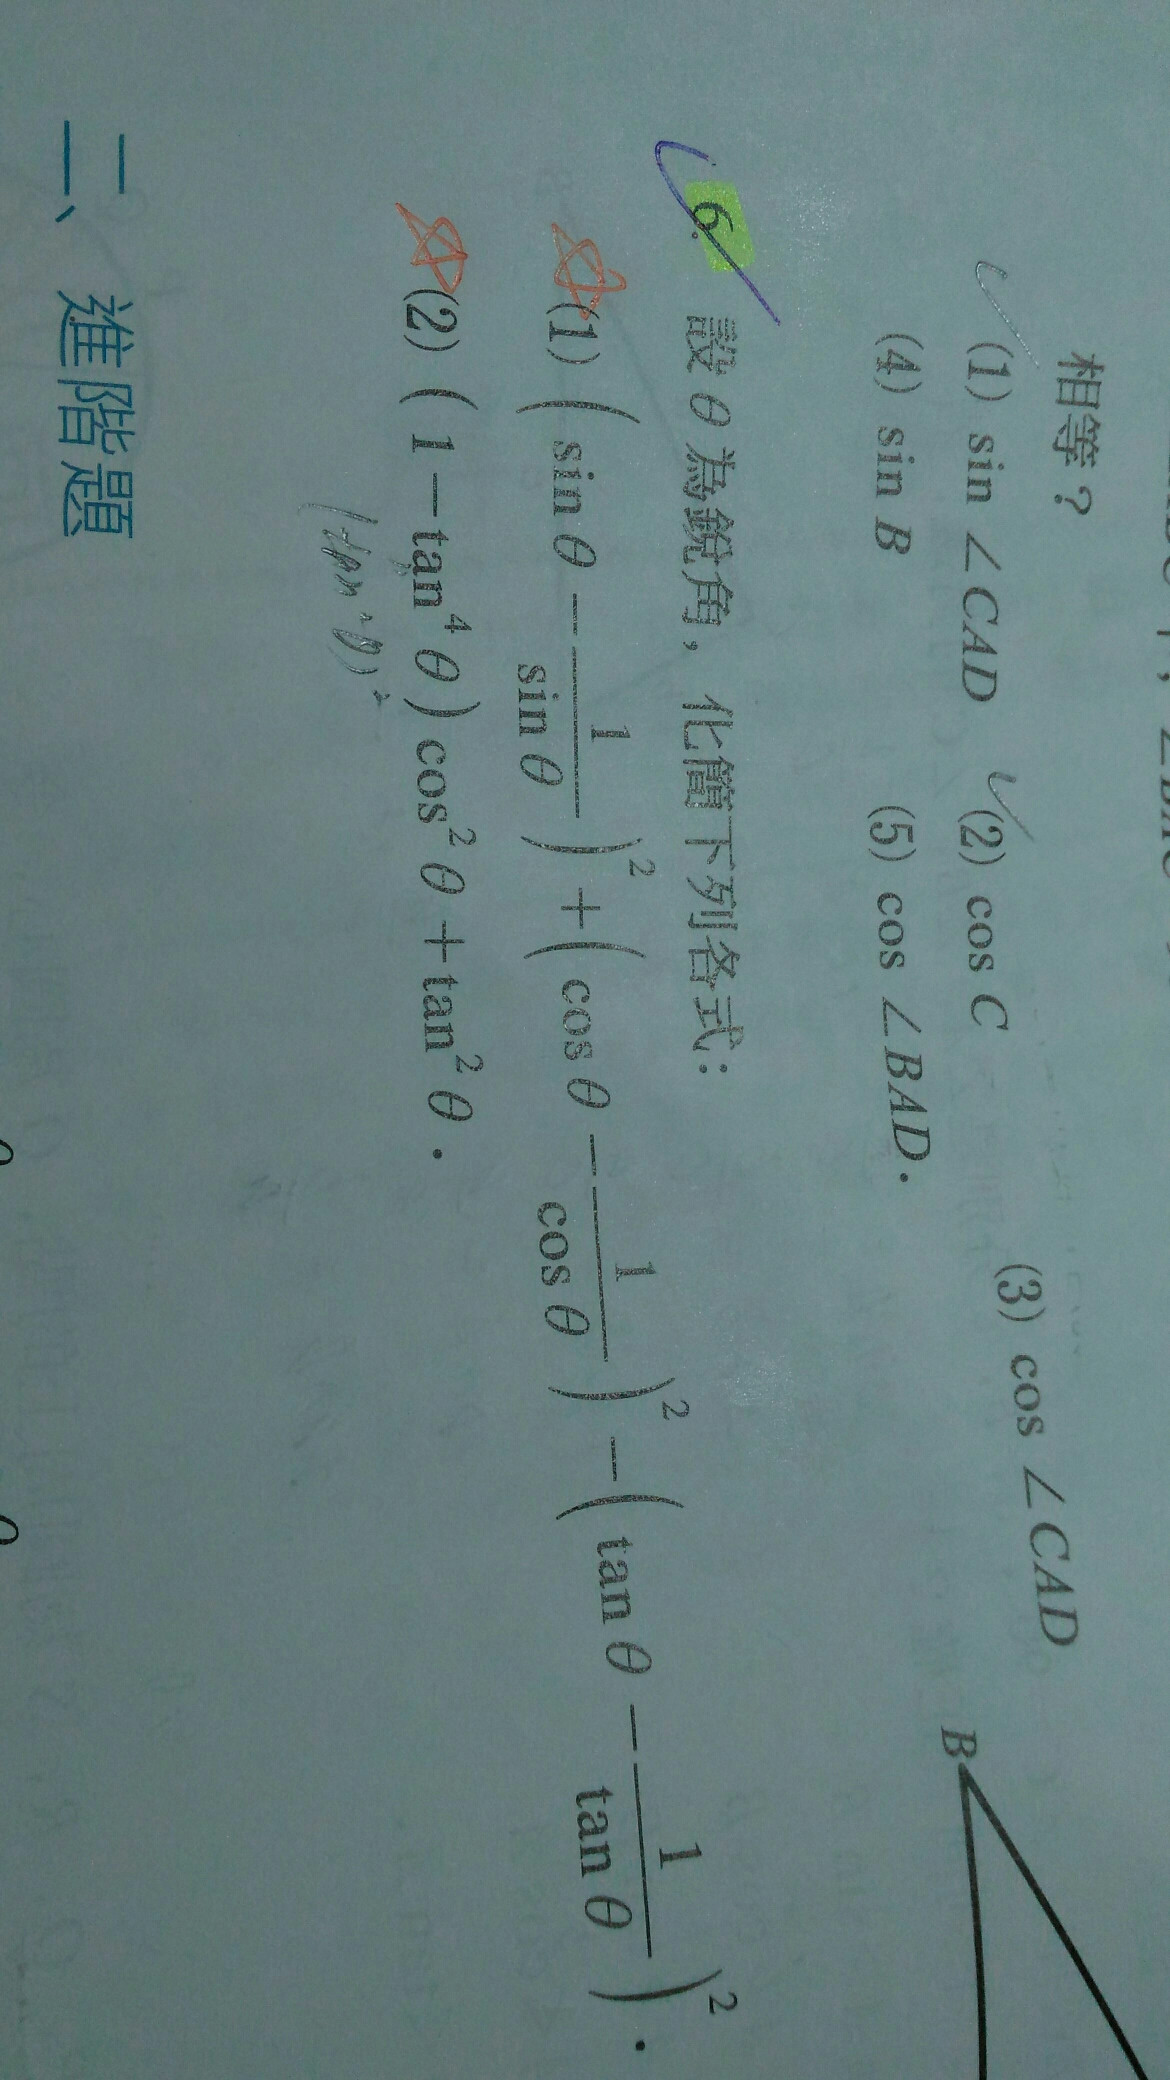 相等？
(1) sin ∠CAD (2) cos C (3) cos ∠CAD
(4) sin B (5) cos ∠BAD.
B
6. 設 θ 為銳角，化簡下列各式：
(1) (sin θ − 1/sin θ)² + (cos θ − 1/cos θ)² − (tan θ − 1/tan θ)².
(2) (1−tan⁴ θ) cos² θ + tan² θ.
(tan² θ)²
二、進階題